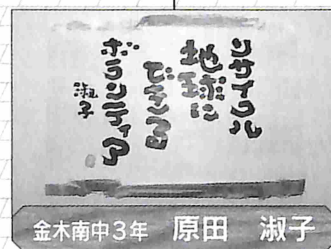 リサイクル
地球に
できる
ボランティア
淑子
金木南中3年 原田 淑子